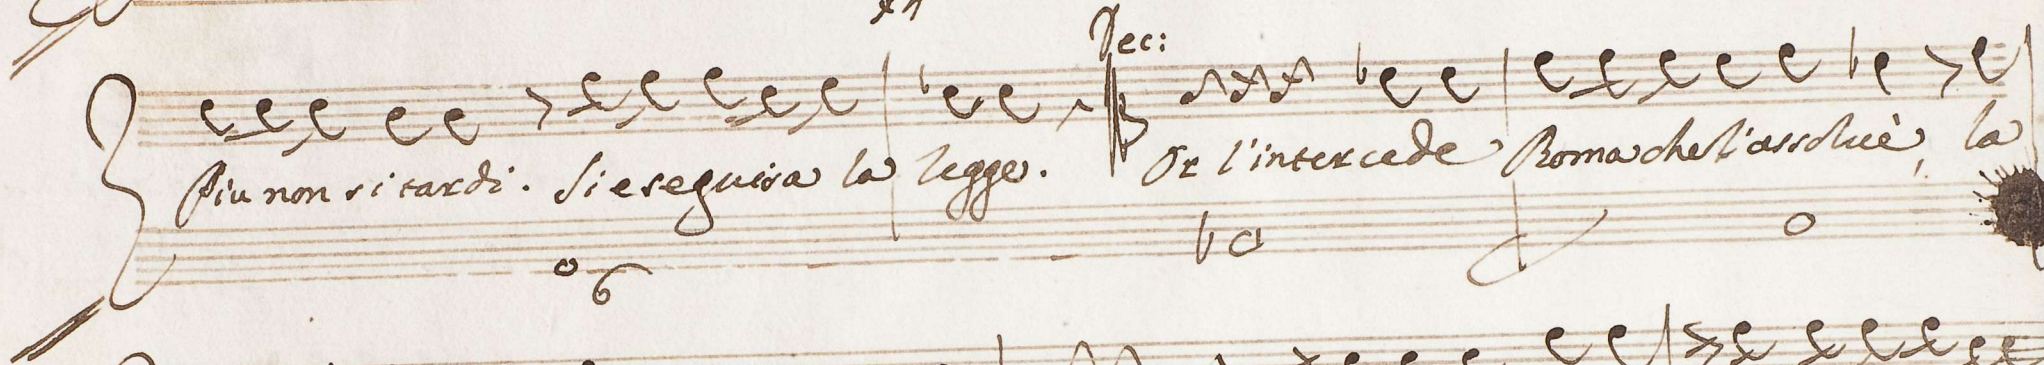 Vec:
Piu non si tardi. Si eseguisca la legge. Or l'intercede Roma che l'assolvè, la
6